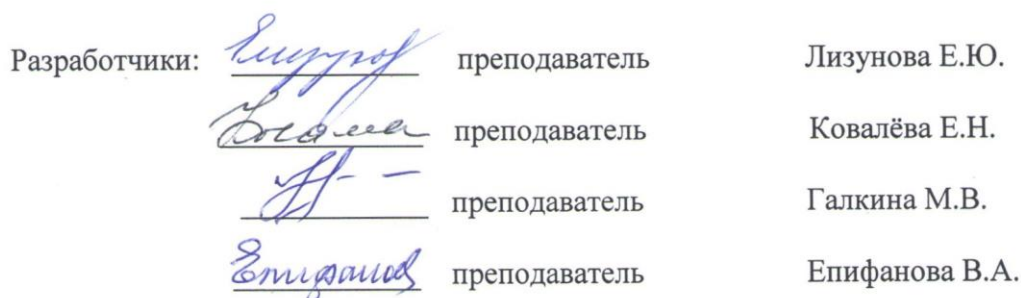 Разработчики: преподаватель Лизунова Е.Ю.
преподаватель Ковалёва Е.Н.
преподаватель Галкина М.В.
Епифанов преподаватель Епифанова В.А.